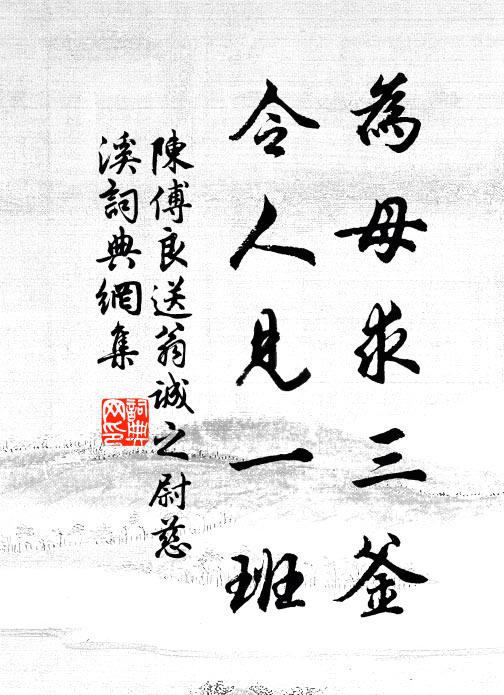 為母求三釜
令人見一班
陳傅良送翁誠之尉慈
溪詞典網集
詞典網印